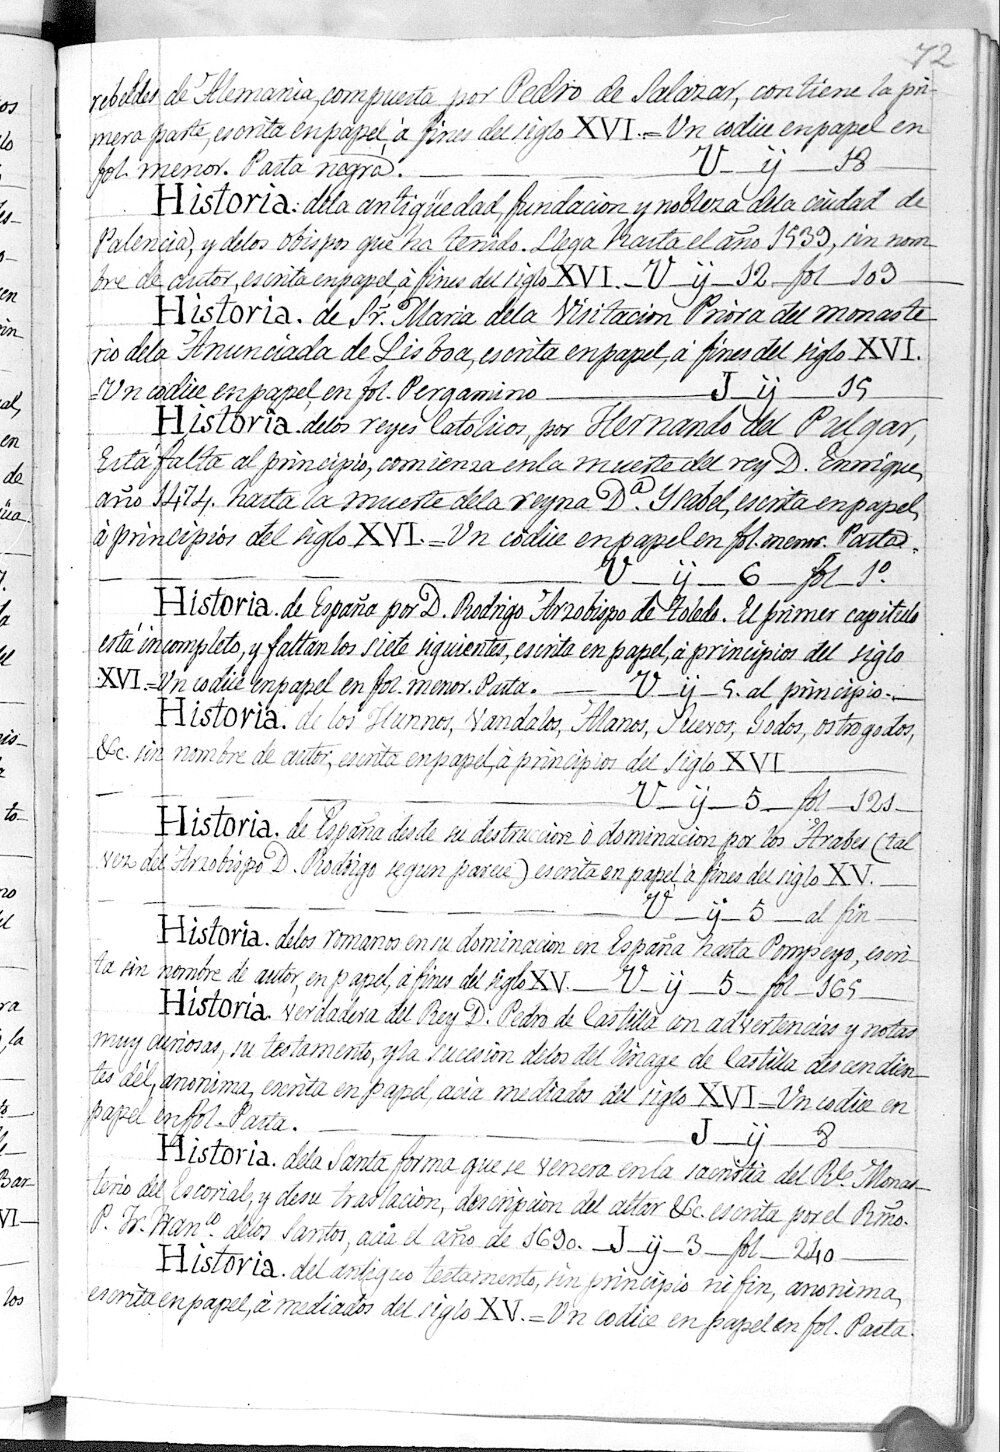 72
rebeldes de Alemania, compuesta por Pedro de Salazar, contiene la pri-
mera parte, escrita en papel, á fines del siglo XVI. = Un codice en papel en
fol. menor. Pasta negra. V ij 18
Historia: dela antigüedad, fundacion y nobleza dela ciudad de
Palencia, y delos obispos que ha tenido. Llega hasta el año 1539, sin nom-
bre de autor, escrita en papel, á fines del siglo XVI. V ij 12 fol 103
Historia. de Sr. Maria dela Visitacion Priora del monaste
rio dela Anunciada de Lisboa, escrita en papel, á fines del siglo XVI.
= Un codice en papel, en fol. Pergamino J ij 15
Historia. delos reyes Catolicos, por Hernando del Pulgar,
Está falta al principio, comienza en la muerte del rey D. Enrrique,
año 1474. hasta la muerte dela reyna Dª. Ysabel, escrita en papel,
á principios del siglo XVI. = Un codice en papel en fol. menor. Pasta.
V ij 6 fol 1º.
Historia. de España por D. Rodrigo Arzobispo de Toledo. El primer capitulo
está incompleto, y faltan los siete siguientes, escrita en papel, á principios del siglo
XVI. = Un codice en papel en fol. menor. Pasta. V ij 5. al principio.
Historia. de los Hunnos, Vandalos, Alanos, Suevos, Godos, ostrogodos,
&c. sin nombre de autor, escrita en papel, á principios del siglo XVI
V ij 5 fol 121
Historia. de España desde su destruccion ó dominacion por los Arabes (tal
vez del Arzobispo D. Rodrigo segun parece) escrita en papel á fines del siglo XV.
V ij 5 al fin
Historia. delos romanos en su dominacion en España hasta Pompeyo, escri-
ta sin nombre de autor, en papel, á fines del siglo XV. V ij 5 fol 165
Historia. verdadera del Rey D. Pedro de Castilla con advertencias y notas
muy curiosas, su testamento, y la sucesion delos del linage de Castilla descendien-
tes dél, anonima, escrita en papel, acia mediados del siglo XVI = Un codice en
papel en fol. Pasta. J ij 8
Historia. dela Santa forma que se venera en la sacristia del Rl. Monas-
terio del Escorial, y desu traslacion, descripcion del altar &c. escrita por el Rmo.
P. Fr. Franco. delos Santos, acia el año de 1690. J ij 3 fol 240
Historia. del antiguo testamento, sin principio ni fin, anonima,
escrita en papel, á mediados del siglo XV. = Un codice en papel en fol. Pasta.